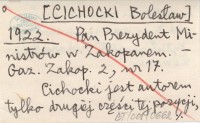 [CICHOCKI Bolesław]
1922. Pan Prezydent Mi-
nistrów w Zakopanem. –
Gaz. Zakop. 2, nr 17.
Cichocki jest autorem
tylko drugiej części tej pozycji,